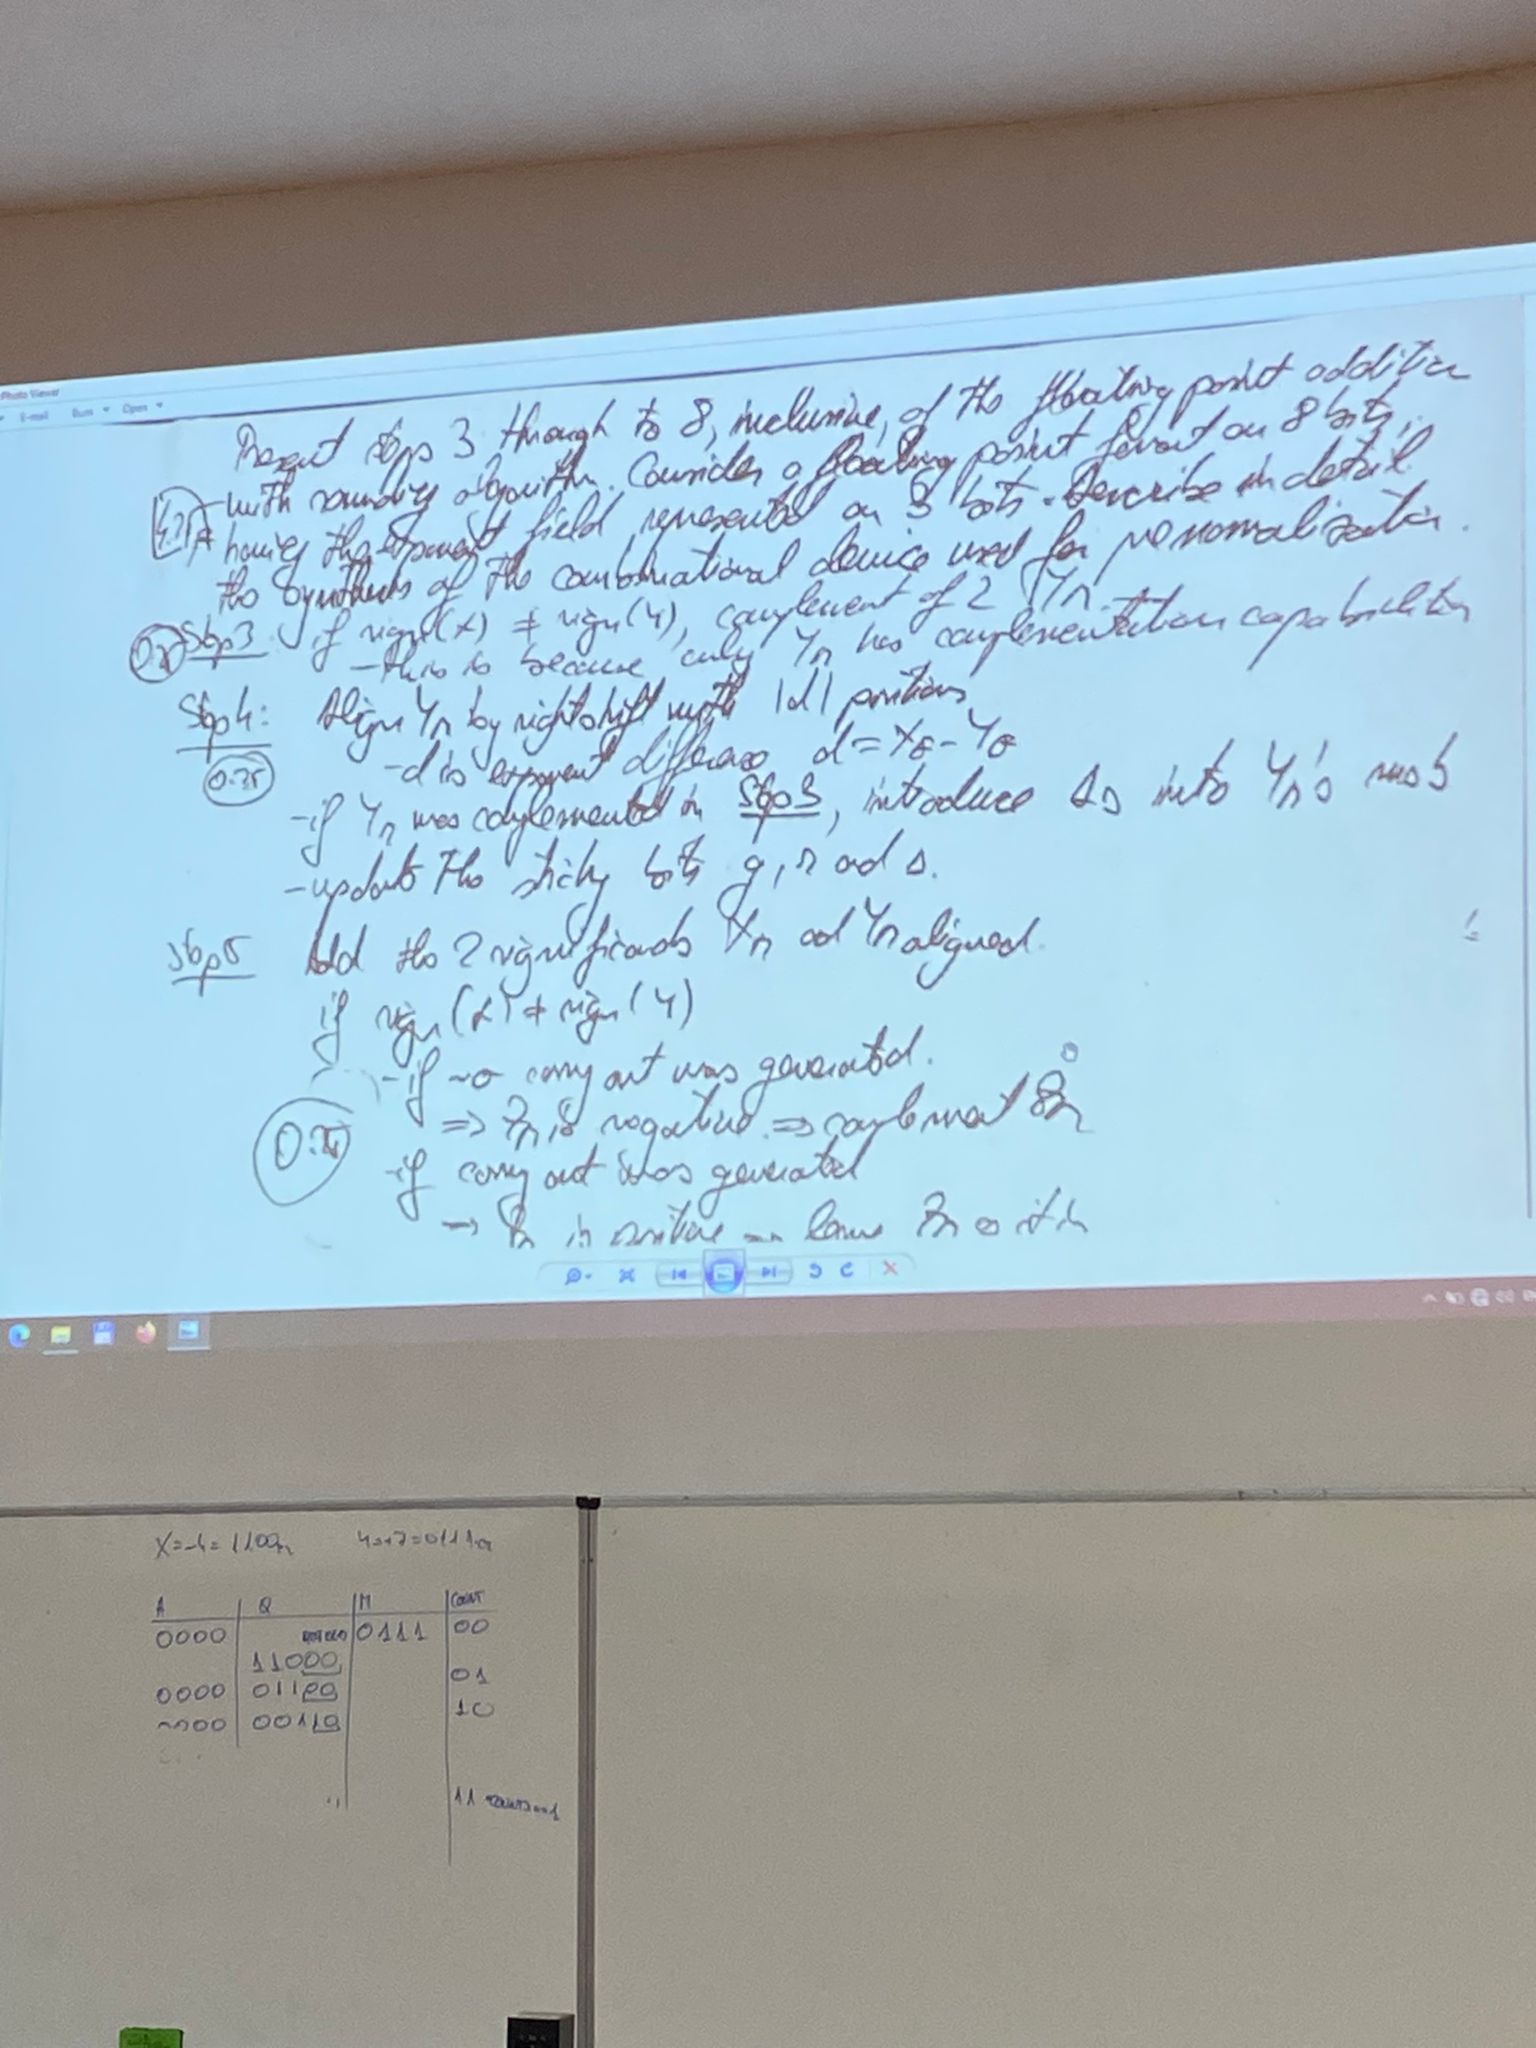 Photo Viewer
E-mail Burn Open
Present steps 3 through to 8, inclusive, of the floating point addition
with rounding algorithm. Consider a floating point format on 8 bits,
having the exponent field represented on 3 bits. Describe in detail
the synthesis of the combinational device used for renormalization.
Step 3: if sign(X) ≠ sign(Y), complement of 2 Yn.
- this is because only Yn has complementation capabilities
Step 4: Align Yn by right shift with |d| positions
- d is exponent difference d = XE - YE
0.25
- if Yn was complemented in Step 3, introduce 1s into Yn's msb
- update the sticky bits g, r and s.
Step 5 Add the 2 significands Xn and Yn aligned.
if sign(X) ≠ sign(Y)
- if no carry out was generated.
⇒ Zn is negative ⇒ complement Zn
- if carry out was generated
→ Zn is positive leave Zn as it is
X=-4=1100 Y=+7=0111
A Q M COUNT
0000 0111 00
11000
01
0000 01100
10
00110
11